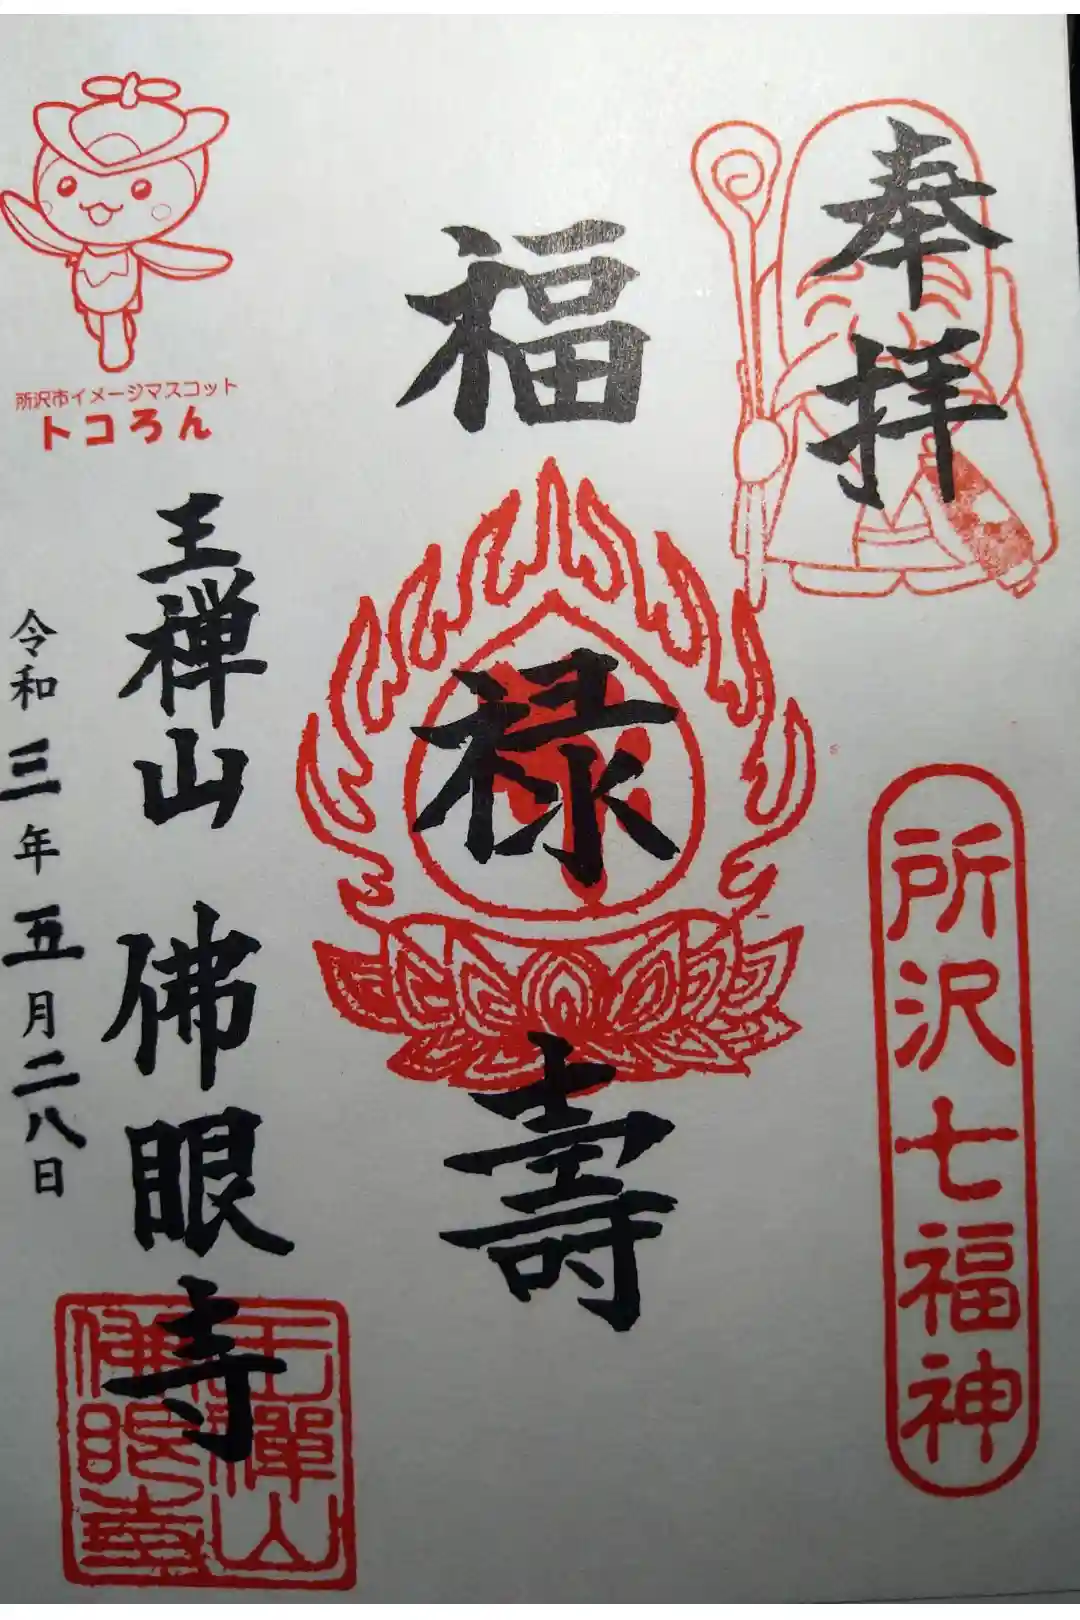 奉拝
所沢七福神
福禄壽
所沢市イメージマスコット
トコろん
王禅山 佛眼寺
令和三年五月二八日
王禪山
佛眼寺